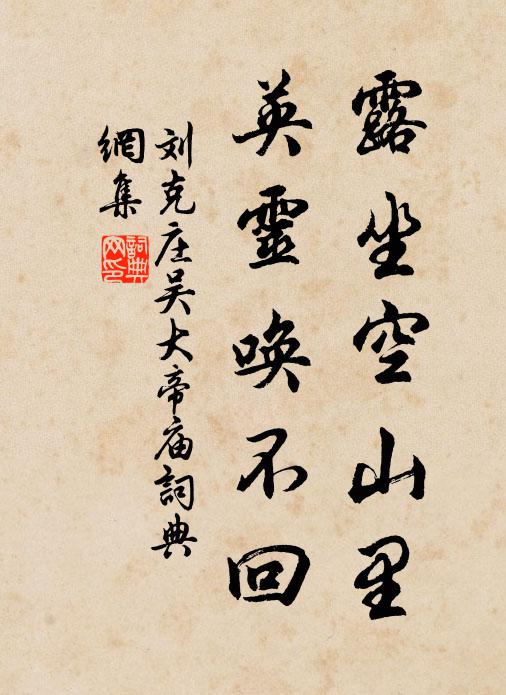 露坐空山里
英靈唤不回
刘克庄吴大帝庙詞典
網集
詞典网印